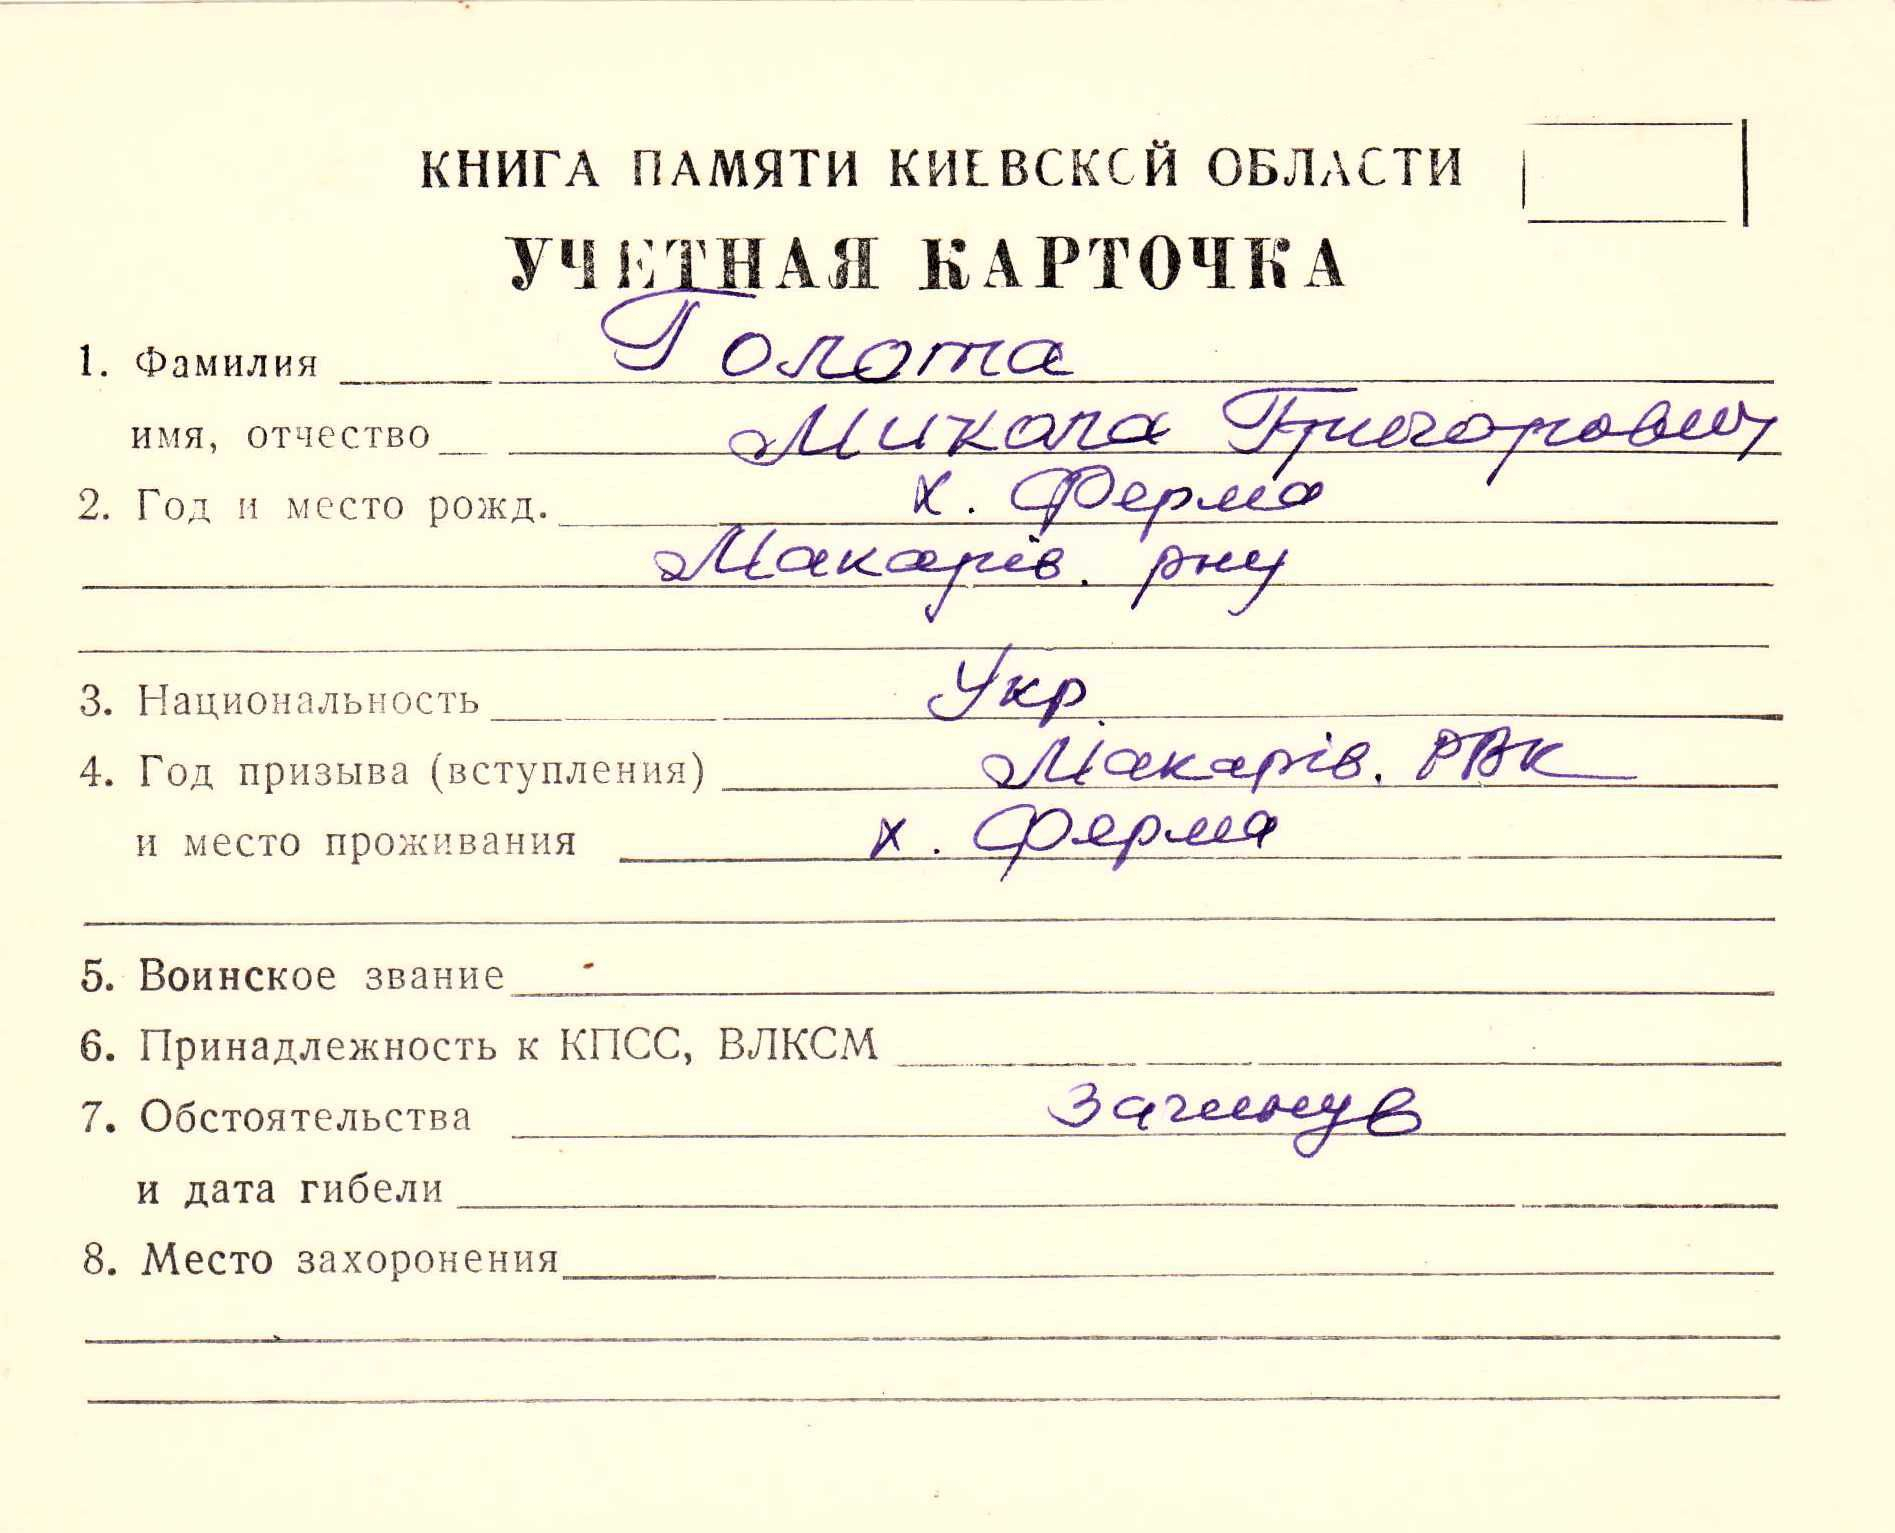 КНИГА ПАМЯТИ КИЕВСКОЙ ОБЛАСТИ
УЧЕТНАЯ КАРТОЧКА
1. Фамилия Голота
имя, отчество Микола Григорович
2. Год и место рожд. х. Ферма
Макарів. рну
3. Национальность Укр.
4. Год призыва (вступления) Макарів. РВК
и место проживания х. Ферма
5. Воинское звание
6. Принадлежность к КПСС, ВЛКСМ
7. Обстоятельства загинув
и дата гибели
8. Место захоронения